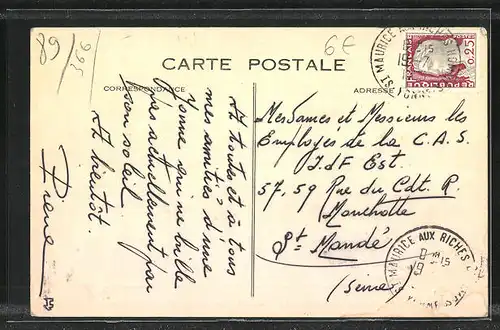 89/366
6€
CARTE POSTALE
CORRESPONDANCE
ADRESSE
A toutes et à tous
mes amitiés d'une
Yonne qui ne brille
pas actuellement par
son soleil.
A bientôt.
Pierre
Mesdames et Messieurs les
Employés de la C.A.S
IdF Est.
57, 59 Rue du Cdt. R.
Mouchotte
St Mandé
(Seine)
0,25
POSTES
REPUBLIQUE
FRANÇAISE
MAURICE AUX RICHES
8-15
YONNE